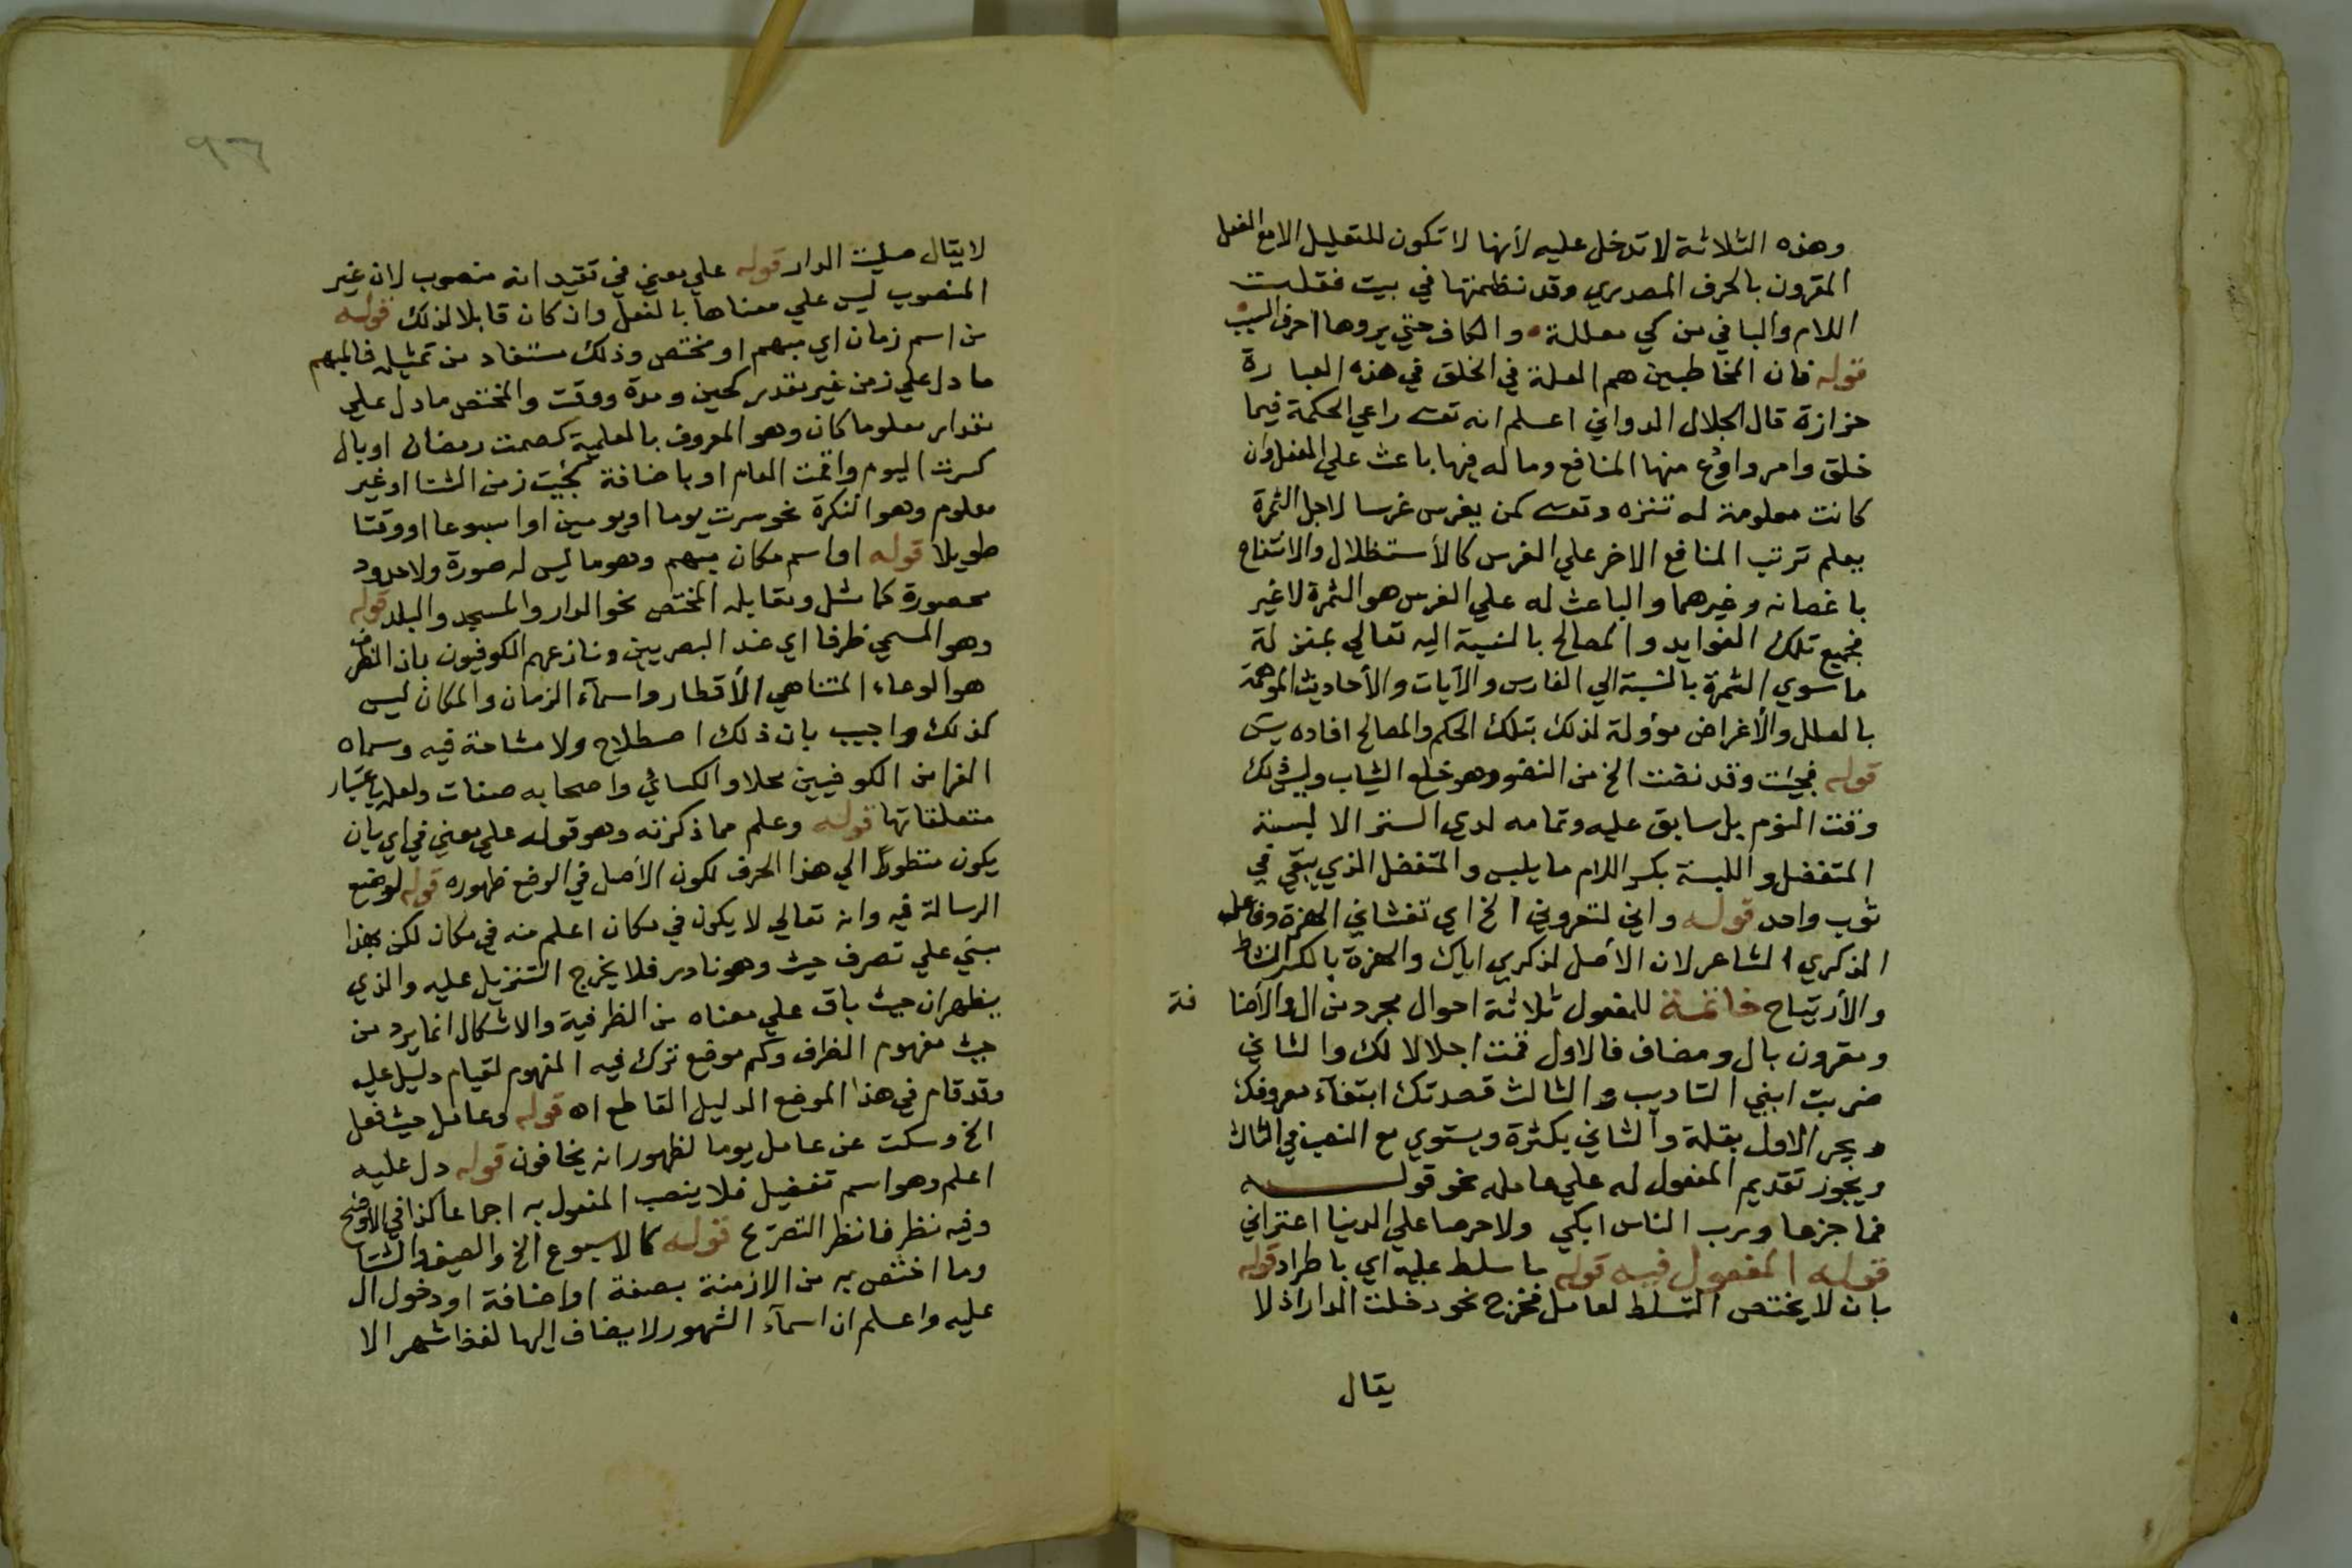 وهذه الثلاثة لا تدخل عليه لأنها لا تكون للتعليل الا مع الفعل
المقرون بالحرف المصدري وقد نظمتها في بيت فقلت
اللام والبا في من كي معللة والكاف حتي يروها احرف السبب
قوله فان المخاطبين هم العلة في الخلق في هذه العبارة
حزازة قال الجلال الدواني اعلم انه تعــ راعي الحكمة فيما
خلق وامر واودع منها المنافع وما له فيها باعث علي الفعل وان
كانت معلومة له تنزه وتعــ كمن يغرس غرسا لاجل الثمرة
يعلم ترتب المنافع الاخر علي الغرس كالأستظلال والانتفاع
با غصانه وغيرهما والباعث له علي الغرس هو الثمرة لاغير
فجميع تلك الفوايد والمصالح بالنسبة اليه تعالي بمنزلة
ما سوي الثمرة بالنسبة الي الغارس والآيات والأحاديث الموهمة
بالعلل والأغراض موؤلة لذلك بتلك الحكم والمصالح افاده يس
قوله فجئت وقد نضت الخ من النضو وهو خلع الثياب وليس ذلك
وقت النوم بل سابق عليه وتمامه لدي الستر الا لبسة
المتفضل واللبسة بكسر اللام ما يلبس والمتفضل الذي يبقي في
ثوب واحد قوله واني لتعروني الخ اي تغشاني الهزة وفاعل
الذكري الشاعر لان الأصل لذكري اياك والهزة بالكسر النشاط
والأرتياح خاتمة للمفعول ثلاثة احوال مجرد من ال والأضافة
ومقرون بال ومضاف فالاول قمت اجلالا لك والثاني
ضربت ابني التاديب والثالث قصدتك ابتغآء معروفك
ويجر الاول بقلة والثاني بكثرة ويستوي مع النصب في الثالث
ويجوز تقديم المفعول له علي عامله نحو قولــه
فما جزعا ورب الناس ابكي ولا حرصا علي الدنيا اعتراني
قوله المفعول فيه قوله ما سلط عليه اي باطراد قوله
بان لا يختص التسلط لعامل فخرج نحو دخلت الدار اذ لا
يقال
لا يقال صليت الدار قوله علي معني في تقيد انه منصوب لان غير
المنصوب ليس علي معناها بالفعل وان كان قابلا لذلك قوله
من اسم زمان اي مبهم او مختص وذلك مستفاد من تمثيله فالمبهم
ما دل علي زمن غير مقدر كحين ومدة ووقت والمختص ما دل علي
مقدار معلوما كان وهو المعروف بالعلمية كصمت رمضان او بال
كسرت اليوم واقمت العام او باضافة كجئت زمن الشتا او غير
معلوم وهو النكرة نحو سرت يوما او يومين او اسبوعا او وقتا
طويلا قوله او اسم مكان مبهم وهو ما ليس له صورة ولا حدود
محصورة كما مثل ومقابله المختص نحو الدار والمسجد والبلد قوله
وهو المسمي ظرفا اي عند البصريين ونازعهم الكوفيون بان الظرف
هو الوعاء المتناهي الأقطار واسمآء الزمان والمكان ليس
كذلك واجيب بان ذلك اصطلاح ولا مشاحة فيه وسماه
الفرا من الكوفيين محلا والكسائي واصحابه صفات ولعله باعتبار
متعلقاتها قوله وعلم مما ذكرته وهو قوله علي معني في اي بان
يكون منظورا الي هذا الحرف لكون الأصل في الوضع ظهوره قوله لوضع
الرسالة فيه وانه تعالي لا يكون في مكان اعلم منه في مكان لكن هذا
مبني علي تصرف حيث وهو نادر فلا يخرج التنزيل عليه والذي
يظهر ان حيث باق علي معناه من الظرفية والاشكال انما يرد من
حيث مفهوم الظرف وكم موضع ترك فيه المفهوم لقيام دليل عليه
وقد قام في هذا الموضع الدليل القاطع اه قوله وعامل حيث فعل
الخ وسكت عن عامل يوما لظهور انه يخافون قوله دل عليه
اعلم وهو اسم تفضيل فلا ينصب المفعول به اجماعا كذا في الأوضح
وفيه نظر فانظر التصريح قوله كالاسبوع الخ والصيف والشتا
وما اختص به من الازمنة بصفة او اضافة او دخول ال
عليه واعلم ان اسمآء الشهور لا يضاف اليها لفظ شهر الا